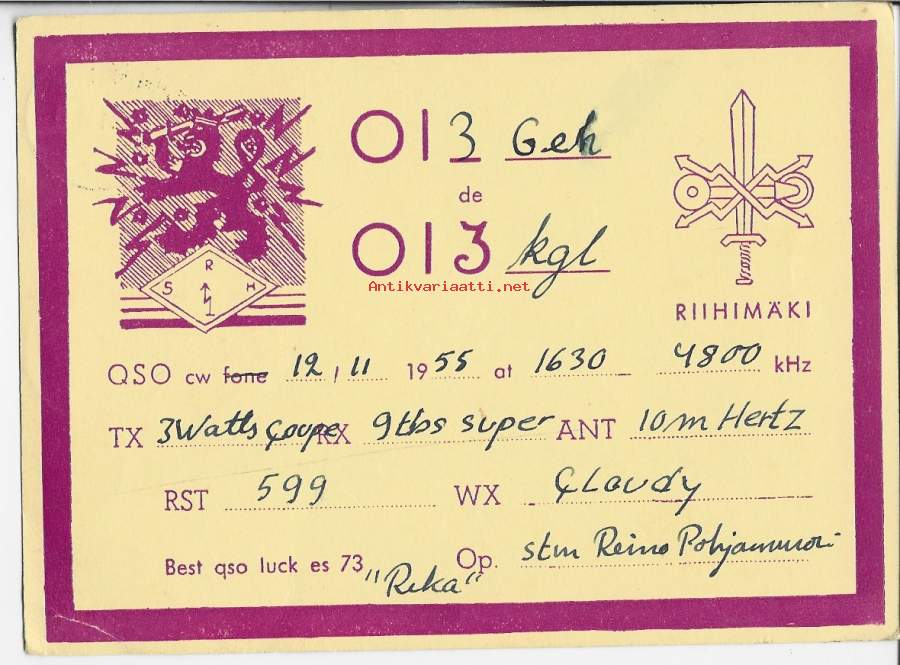 OI3 Gek
de
OI3 kgl
S R H
RIIHIMÄKI
Antikvariaatti.net
QSO cw fone 12 / 11 1955 at 1630 4800 kHz
TX 3Watts çoupe RX 9tbs super ANT 10m Hertz
RST 599 WX Cloudy
Best qso luck es 73 "Reka" Op. stm Reino